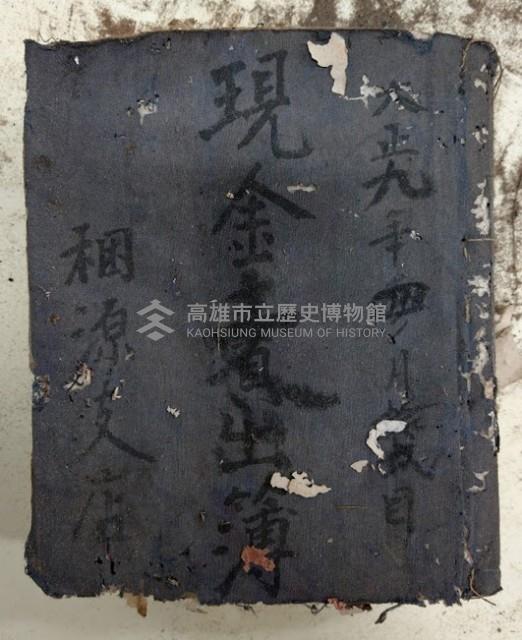 大正九年四月貳日
現金賣出簿
稛源支店
高雄市立歷史博物館
KAOHSIUNG MUSEUM OF HISTORY